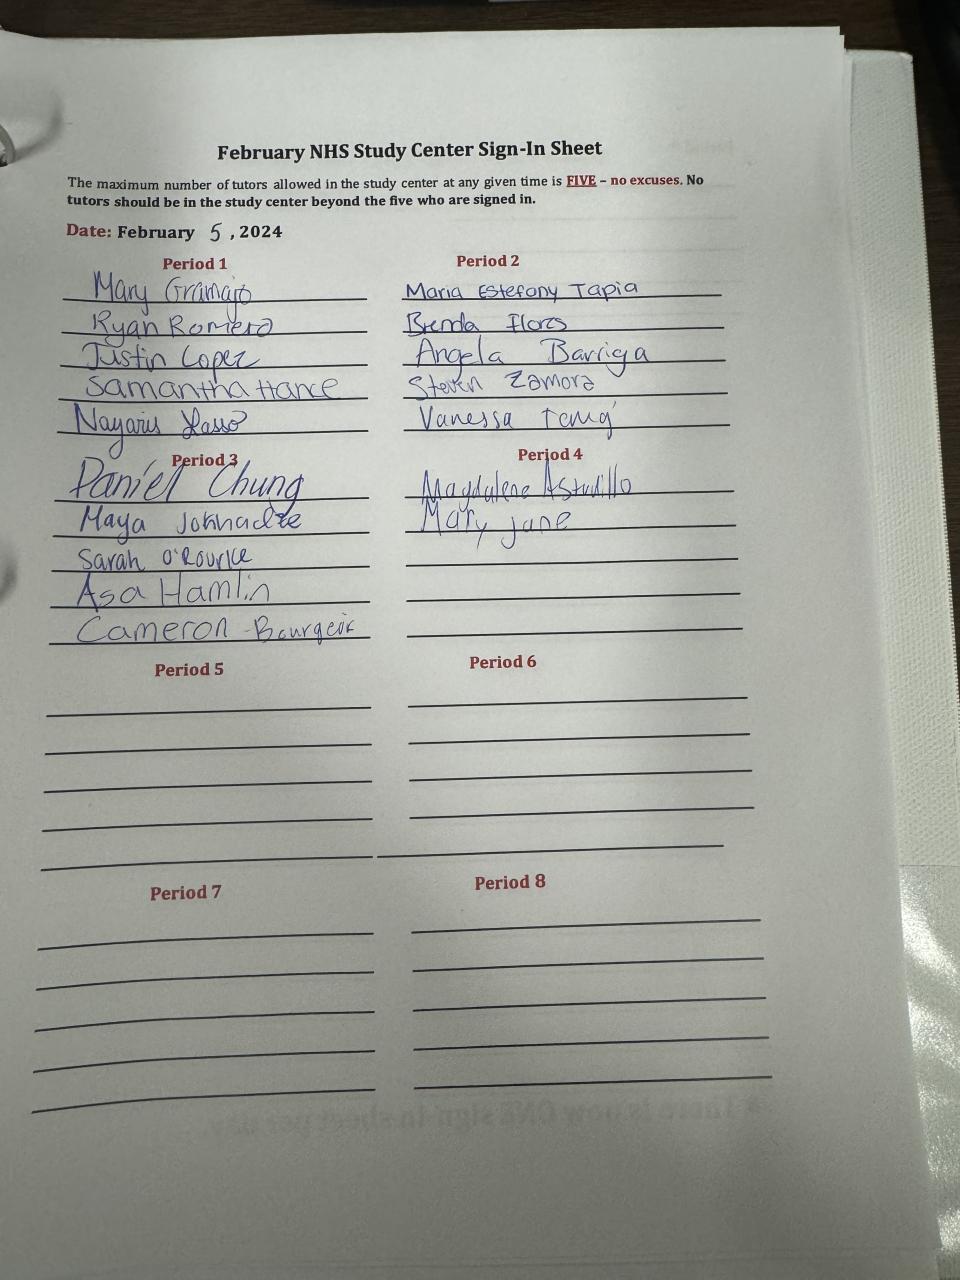 February NHS Study Center Sign-In Sheet
The maximum number of tutors allowed in the study center at any given time is FIVE – no excuses. No
tutors should be in the study center beyond the five who are signed in.
Date: February 5, 2024
Period 1
Mary Gramajo
Ryan Romero
Justin Lopez
Samantha Hance
Nayaris Lasso
Period 2
Maria Estefony Tapia
Brenda Flores
Angela Barriga
Steven Zamora
Vanessa
Period 3
Daniel Chung
Maya
Sarah O'Rourke
Asa Hamlin
Cameron Bourgeois
Period 4
Magdalene Astudillo
Mary jane
Period 5
Period 6
Period 7
Period 8